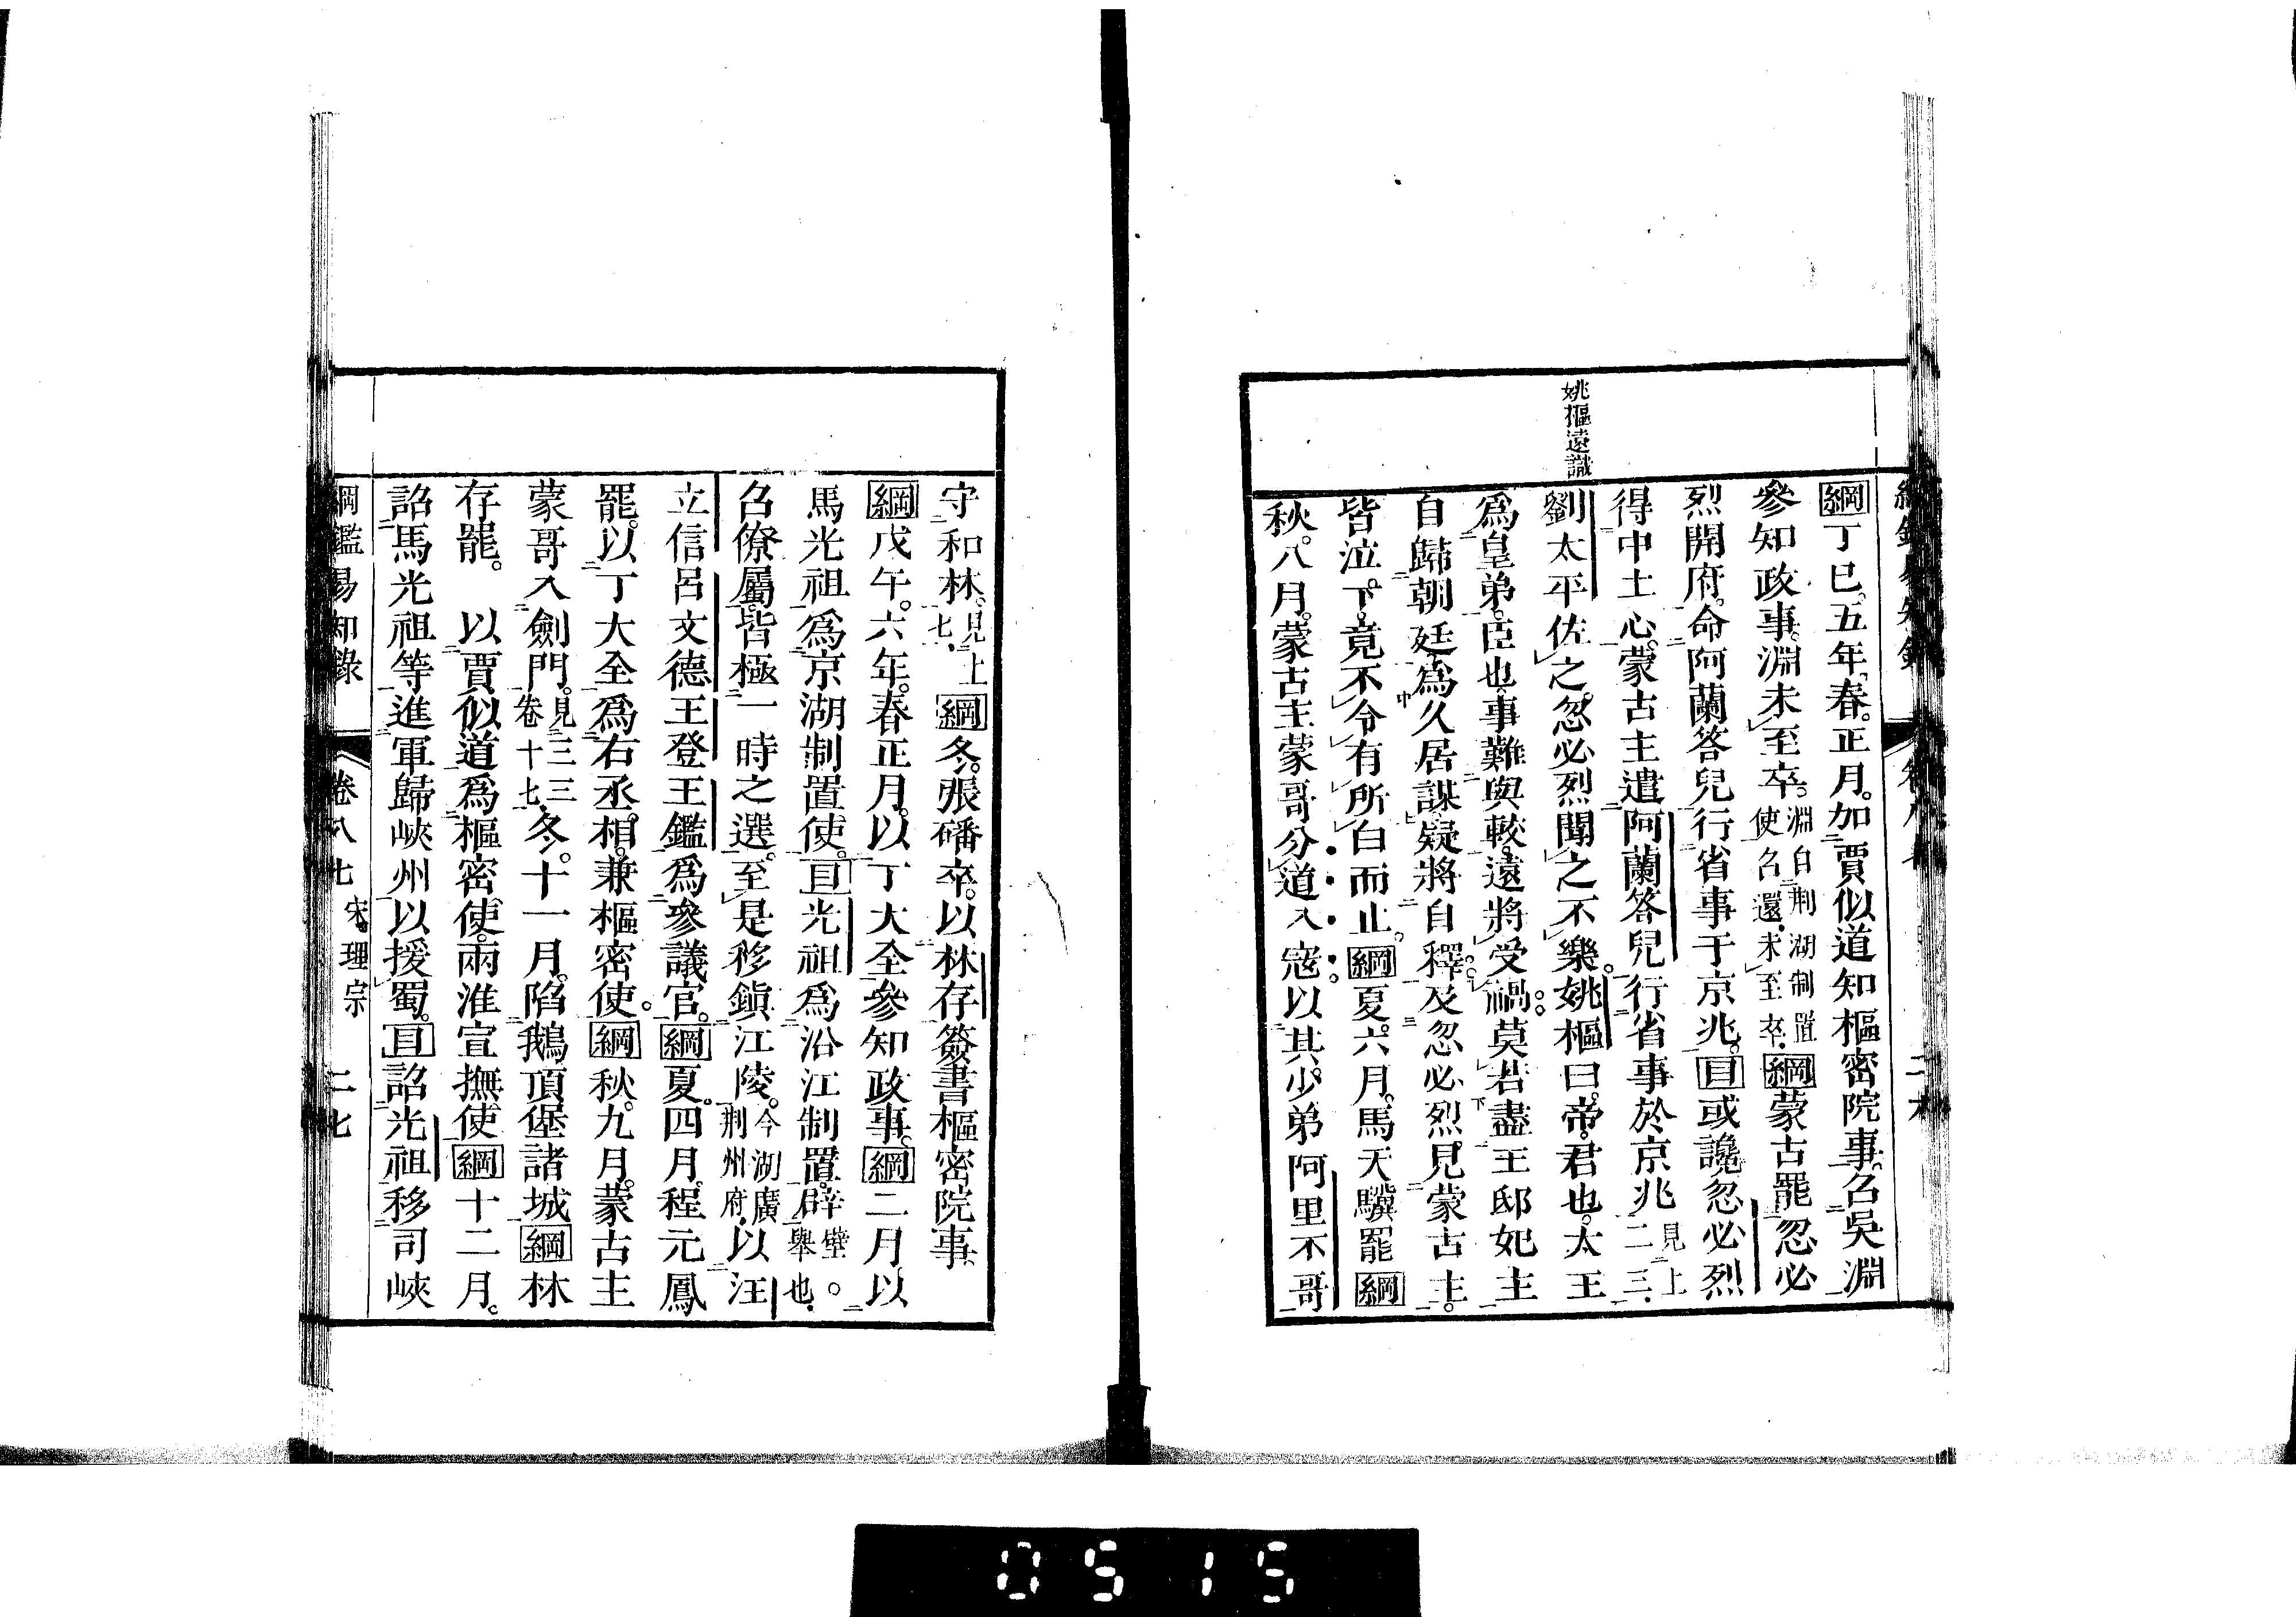 姚樞遠識
綱丁巳。五年。春。正月。加賈似道知樞密院事。召吳淵
參知政事。淵未至卒。淵自荆湖制置使召還。未至卒。綱蒙古罷忽必
烈開府。命阿蘭答兒行省事于京兆。目或讒忽必烈
得中土心。蒙古主遣阿蘭答兒行省事於京兆見上二三。
劉太平佐之。忽必烈聞之不樂。姚樞曰。帝。君也。太王
爲皇弟。臣也。事難與較。遠將受禍。莫若盡王邸妃主
自歸朝廷。爲久居謀。疑將自釋。及忽必烈見蒙古主。
皆泣下。竟不令有所白而止。綱夏。六月。馬天驥罷綱
秋。八月。蒙古主蒙哥分道入寇。以其少弟阿里不哥
守和林。見上七。綱冬。張磻卒。以林存簽書樞密院事。
綱戊午。六年。春正月。以丁大全參知政事。綱二月。以
馬光祖爲京湖制置使。目光祖爲沿江制置。辟壁。舉也。
召僚屬。皆極一時之選。至是移鎭江陵。今湖廣荆州府。以汪
立信呂文德王登王鑑爲參議官。綱夏。四月。程元鳳
罷。以丁大全爲右丞相。兼樞密使。綱秋。九月。蒙古主
蒙哥入劍門。見三三卷十七。冬。十一月。陷鵝頂堡諸城綱林
存罷。 以賈似道爲樞密使。兩淮宣撫使綱十二月。
詔馬光祖等進軍歸峽州以援蜀。目詔光祖移司峽
綱鑑易知錄 卷八七 宋。理宗 二七
0515